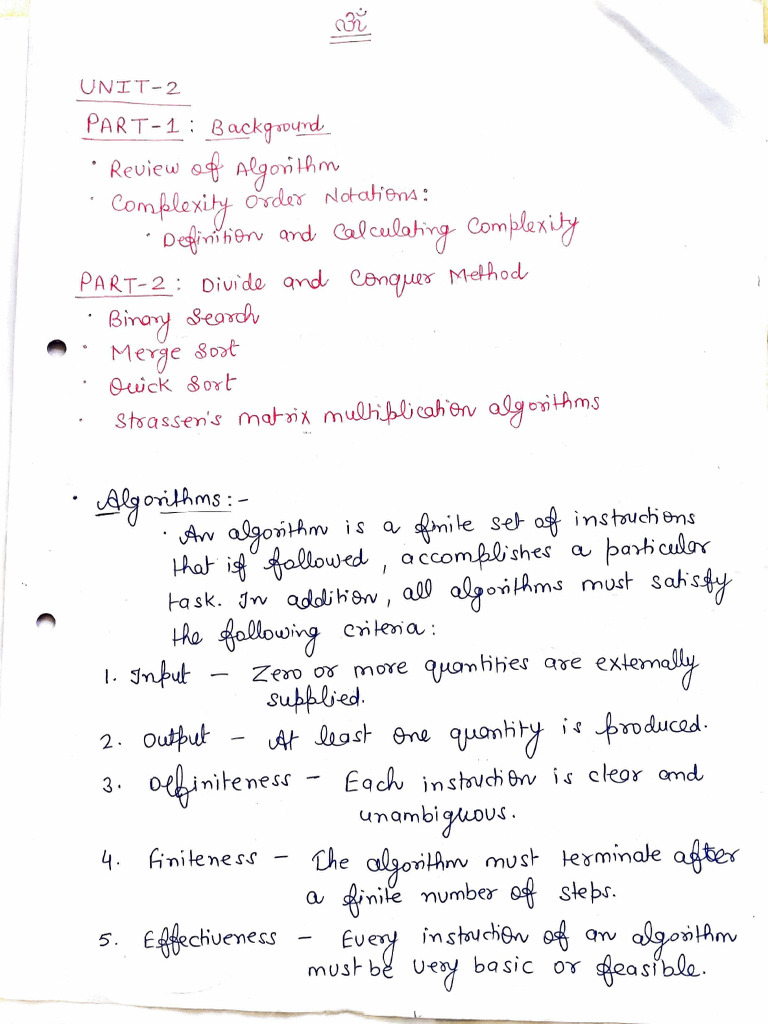 ॐ
UNIT-2
PART-1: Background
· Review of Algorithm
· Complexity Order Notations:
· Definition and Calculating Complexity
PART-2: Divide and Conquer Method
· Binary Search
· Merge Sort
· Quick Sort
· Strassen's matrix multiplication algorithms
· Algorithms:-
· An algorithm is a finite set of instructions
that if followed, accomplishes a particular
task. In addition, all algorithms must satisfy
the following criteria:
1. Input - Zero or more quantities are externally
supplied.
2. Output - At least one quantity is produced.
3. Definiteness - Each instruction is clear and
unambiguous.
4. Finiteness - The algorithm must terminate after
a finite number of steps.
5. Effectiveness - Every instruction of an algorithm
must be very basic or feasible.